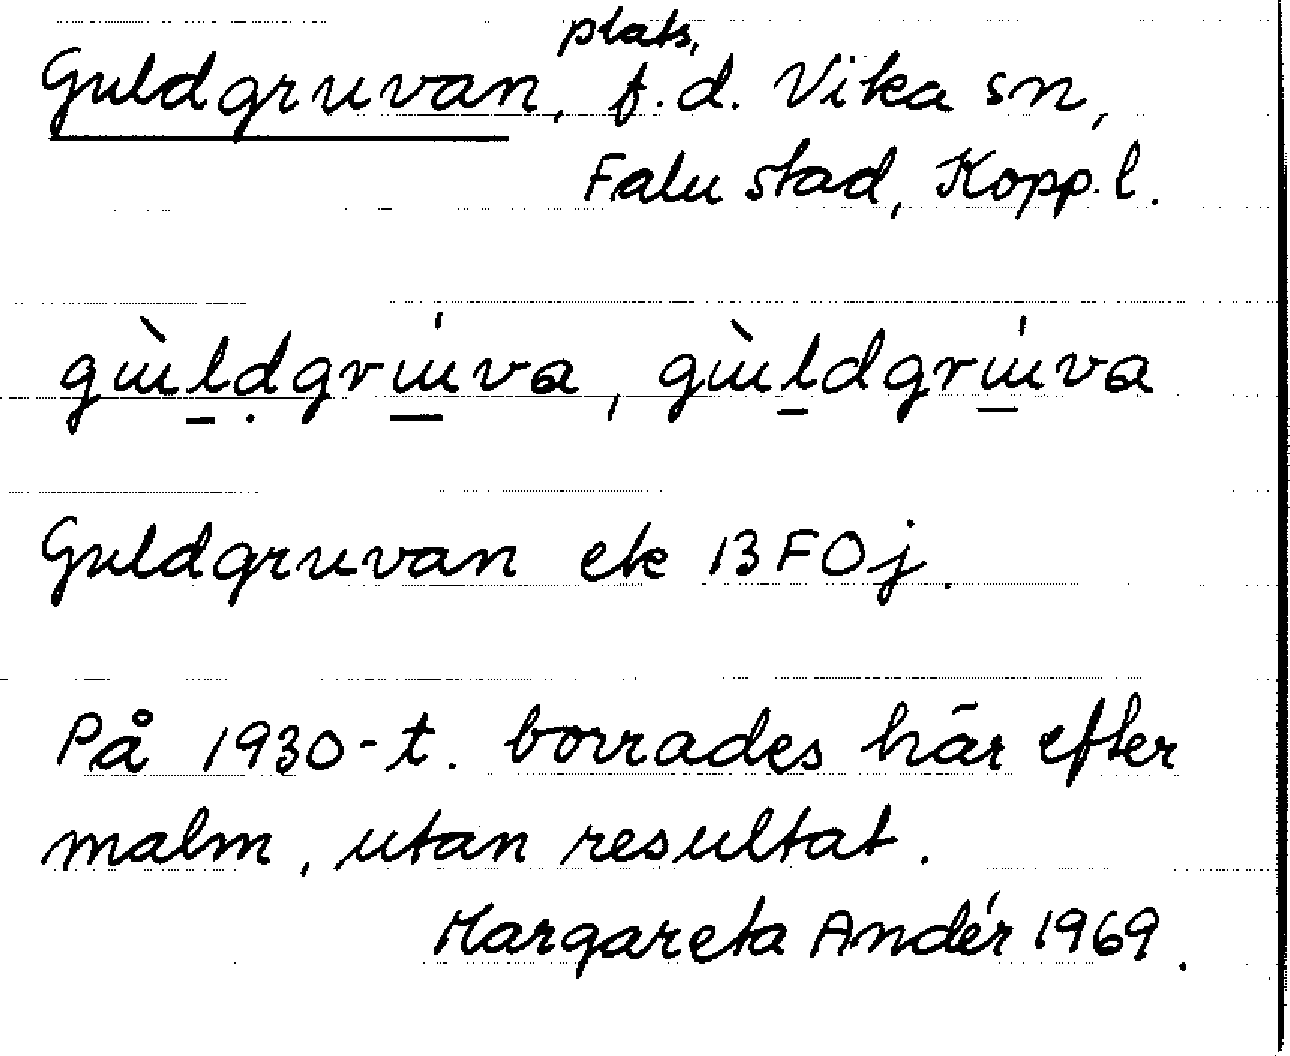 Guldgruvan, plats, f.d. Vika sn,
Falu stad, Kopp. l.
gùl̲ḍgrú̲va, gùl̲dgrú̲va
Guldgruvan ek 13FOj.
På 1930-t. borrades här efter
malm, utan resultat.
Margareta Andér 1969.